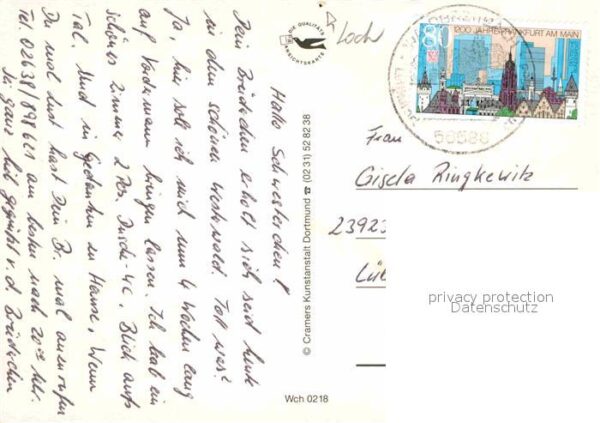 Hallo Schwesterchen!
Dein Brüderchen erholt sich seit heute
in dem schönen Westerwald. Toll was?
Ja, hier soll ich mich nun 4 Wochen lang
auf Vordermann bringen lassen. Ich hab ein
schönes Zimmer 2 Pers. Dusche + C. Blick aufs
Tal. Sind in Gedanken im Hause, Wenn
Du mal Lust hast Dein B. mal anzurufen
Tel. 02638/898621 am besten nach 20 Uhr.
Sei ganz lieb gegrüßt v. d. Brüderchen
DIE QUALITÄTS
ANSICHTSKARTE
Loch
© Cramers Kunstanstalt Dortmund ☎ (02 31) 52 82 38
Wch 0218
80
1200 JAHRE FRANKFURT AM MAIN
56588
Frau
Gisela Ringkewitz
23923
Lüb
privacy protection
Datenschutz